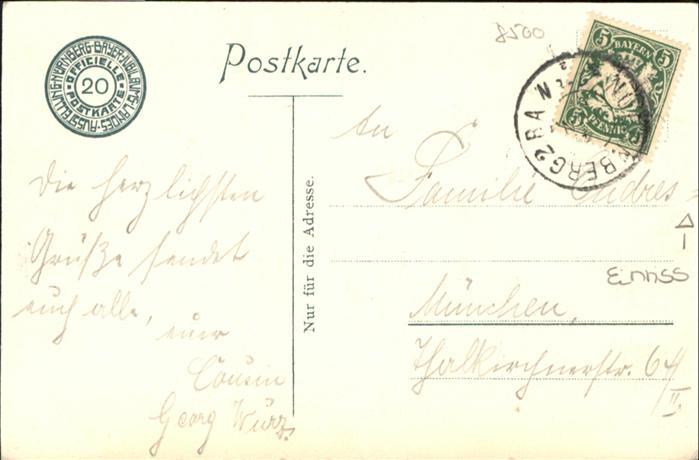 NÜRNBERG·BAYER·JUBILÄUMS·LANDES·AUSSTELLUNG
OFFICIELLE
20
POSTKARTE
Postkarte.
8500
5 BAYERN 5
5 PFENNIG 5
NÜRNBERG 2 B.A.
Die herzlichsten
Grüße sendet
euch alle,
euer
Cousin
Georg Würz
Nur für die Adresse.
An
Familie Endres
Einriss
München,
Thalkirchnerstr. 64/
II.